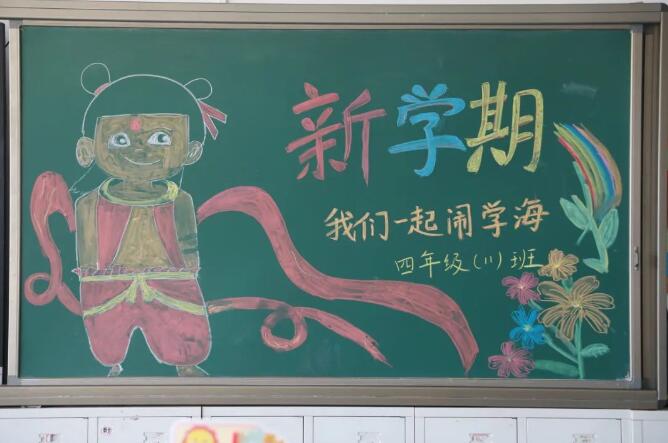 新学期
我们一起闹学海
四年级(11)班